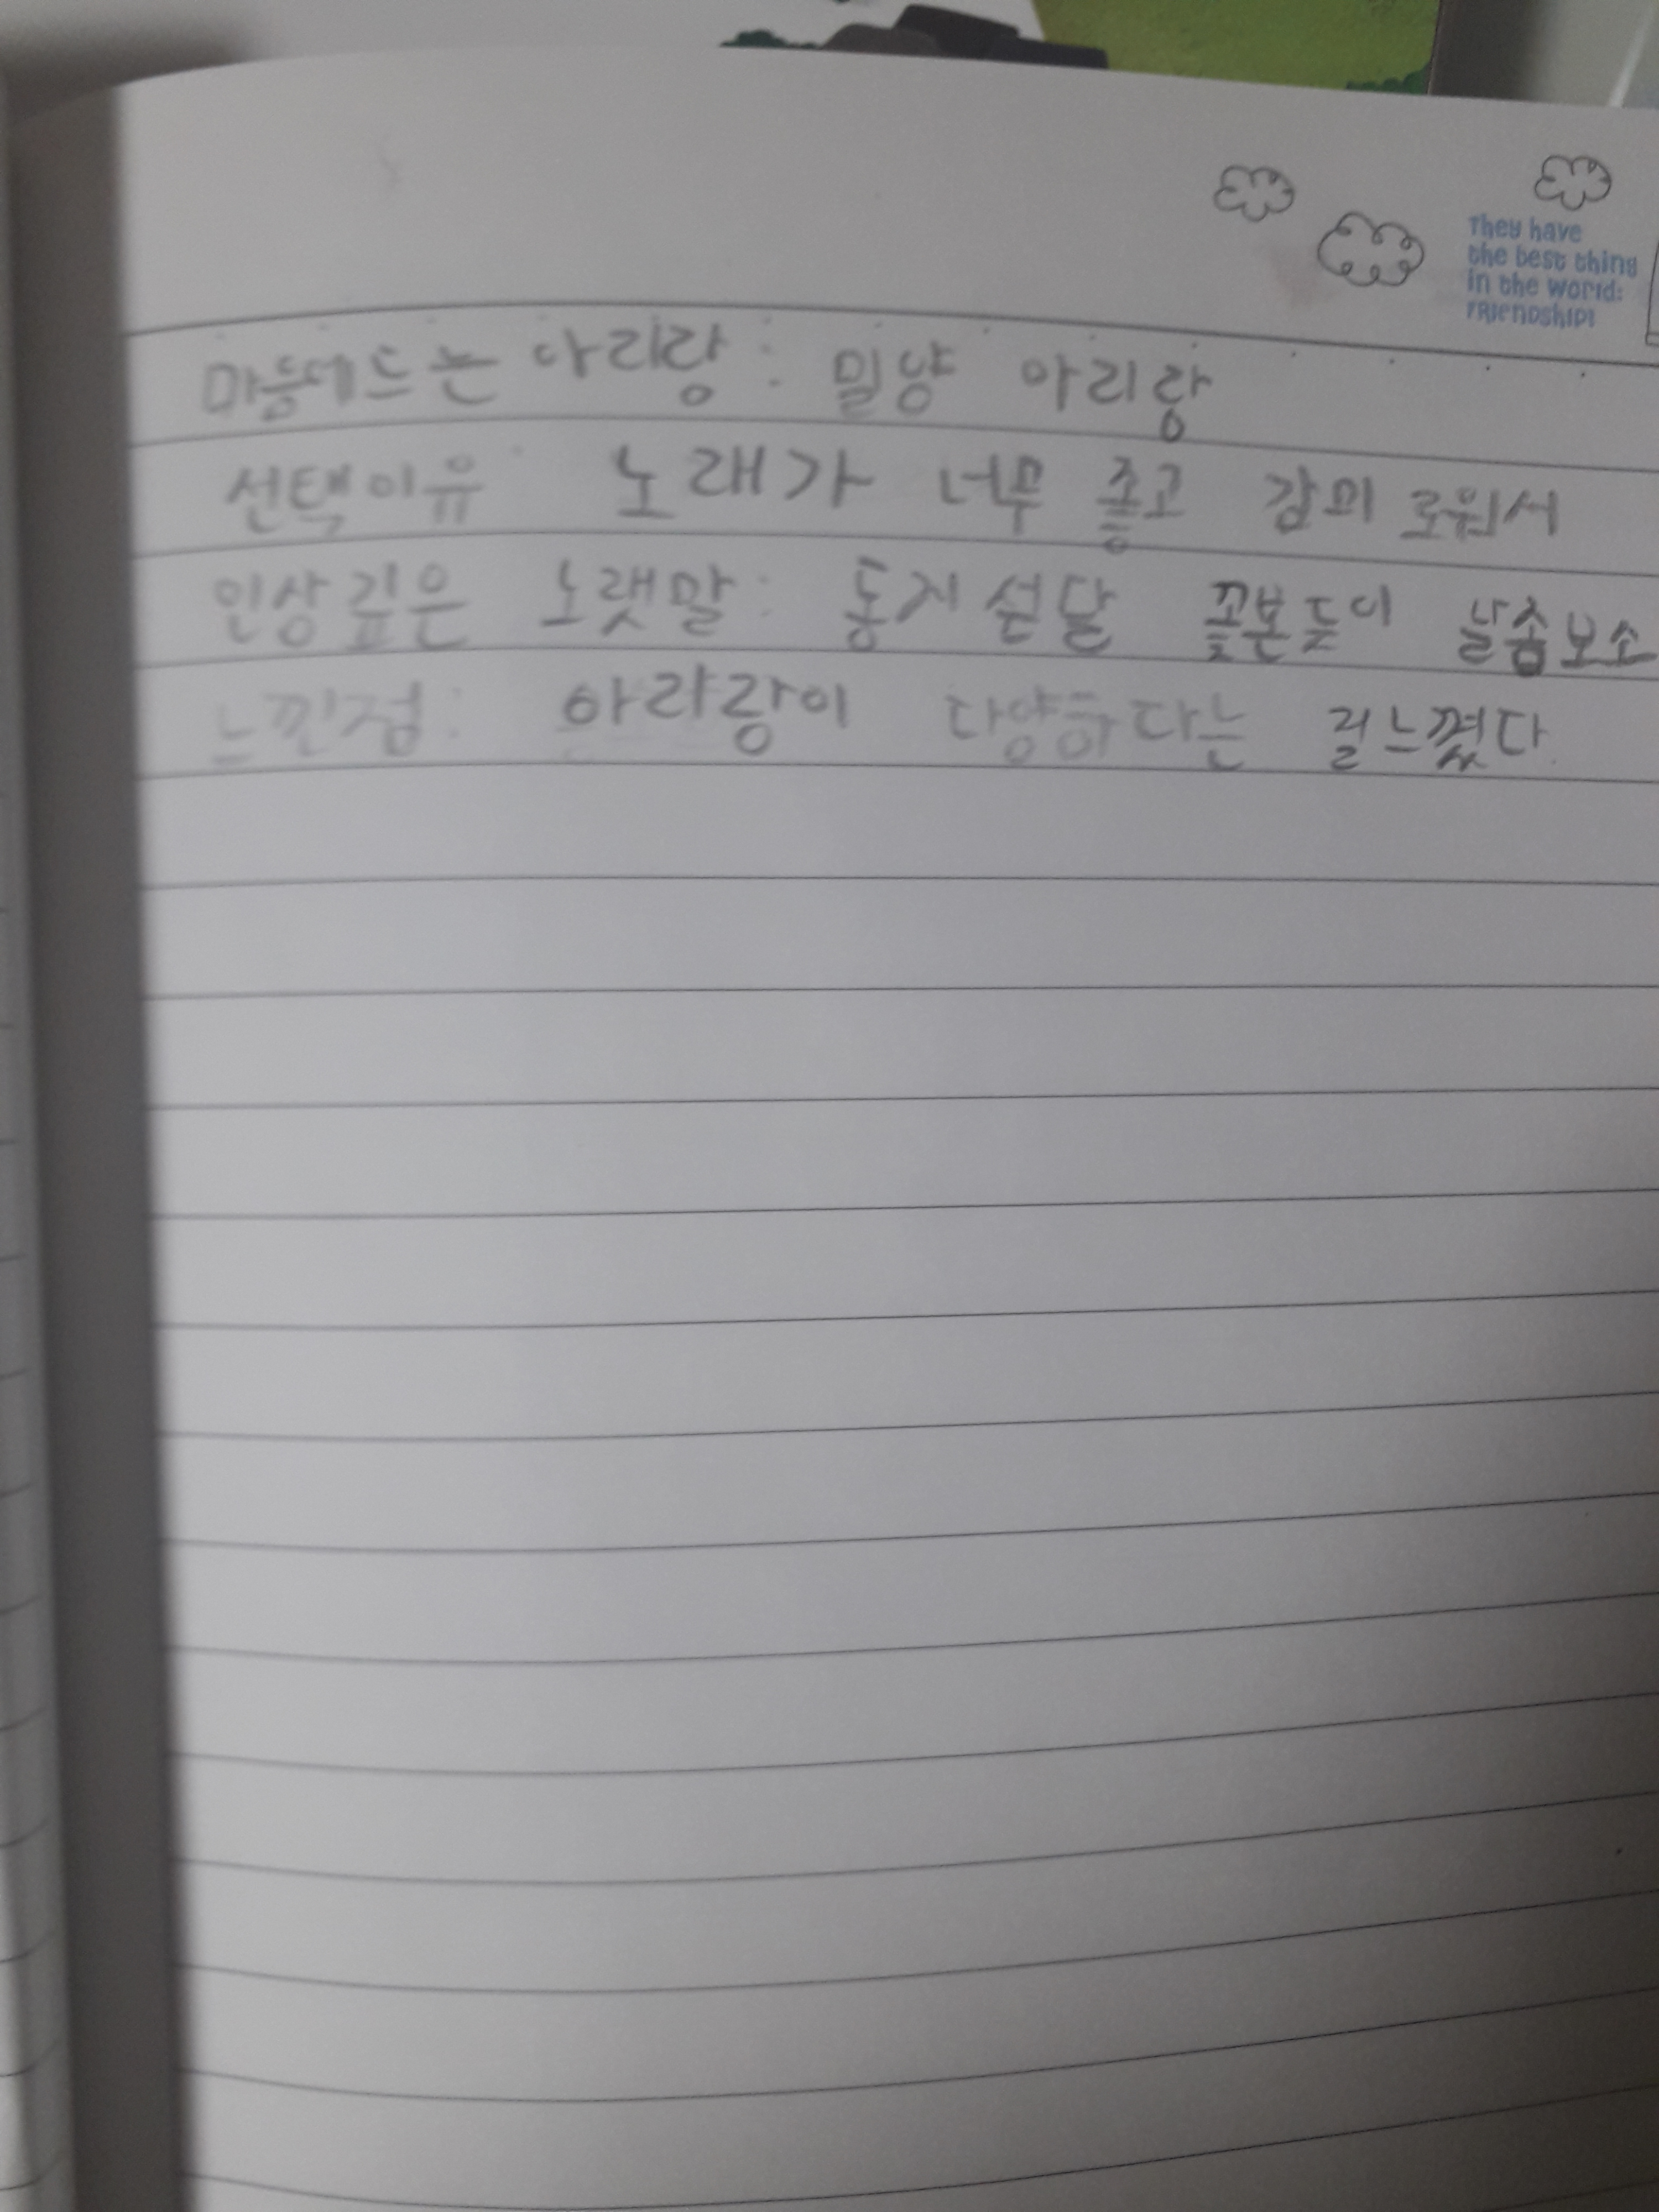 They have
the best thing
in the world:
FRIENDSHIP!
마음에드는 아리랑 : 밀양 아리랑
선택이유 노래가 너무 좋고 감미로워서
인상깊은 노랫말 : 동지섣달 꽃본듯이 날좀보소
느낀점 : 아리랑이 다양하다는 걸느꼈다.